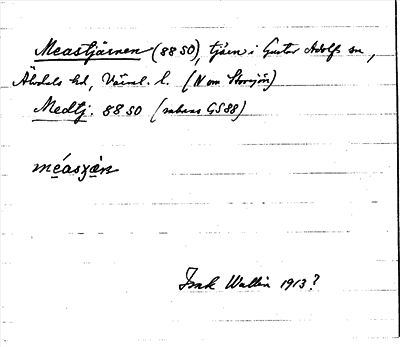 Meastjärnen (88 SO), tjärn i Gustav Adolfs sn,
Älvdals hd, Värml. l. (N om Storsjön)
Medtj. 88 SO (rubens GS88)
méasʒæ̀n
Isak Wallin 1913?